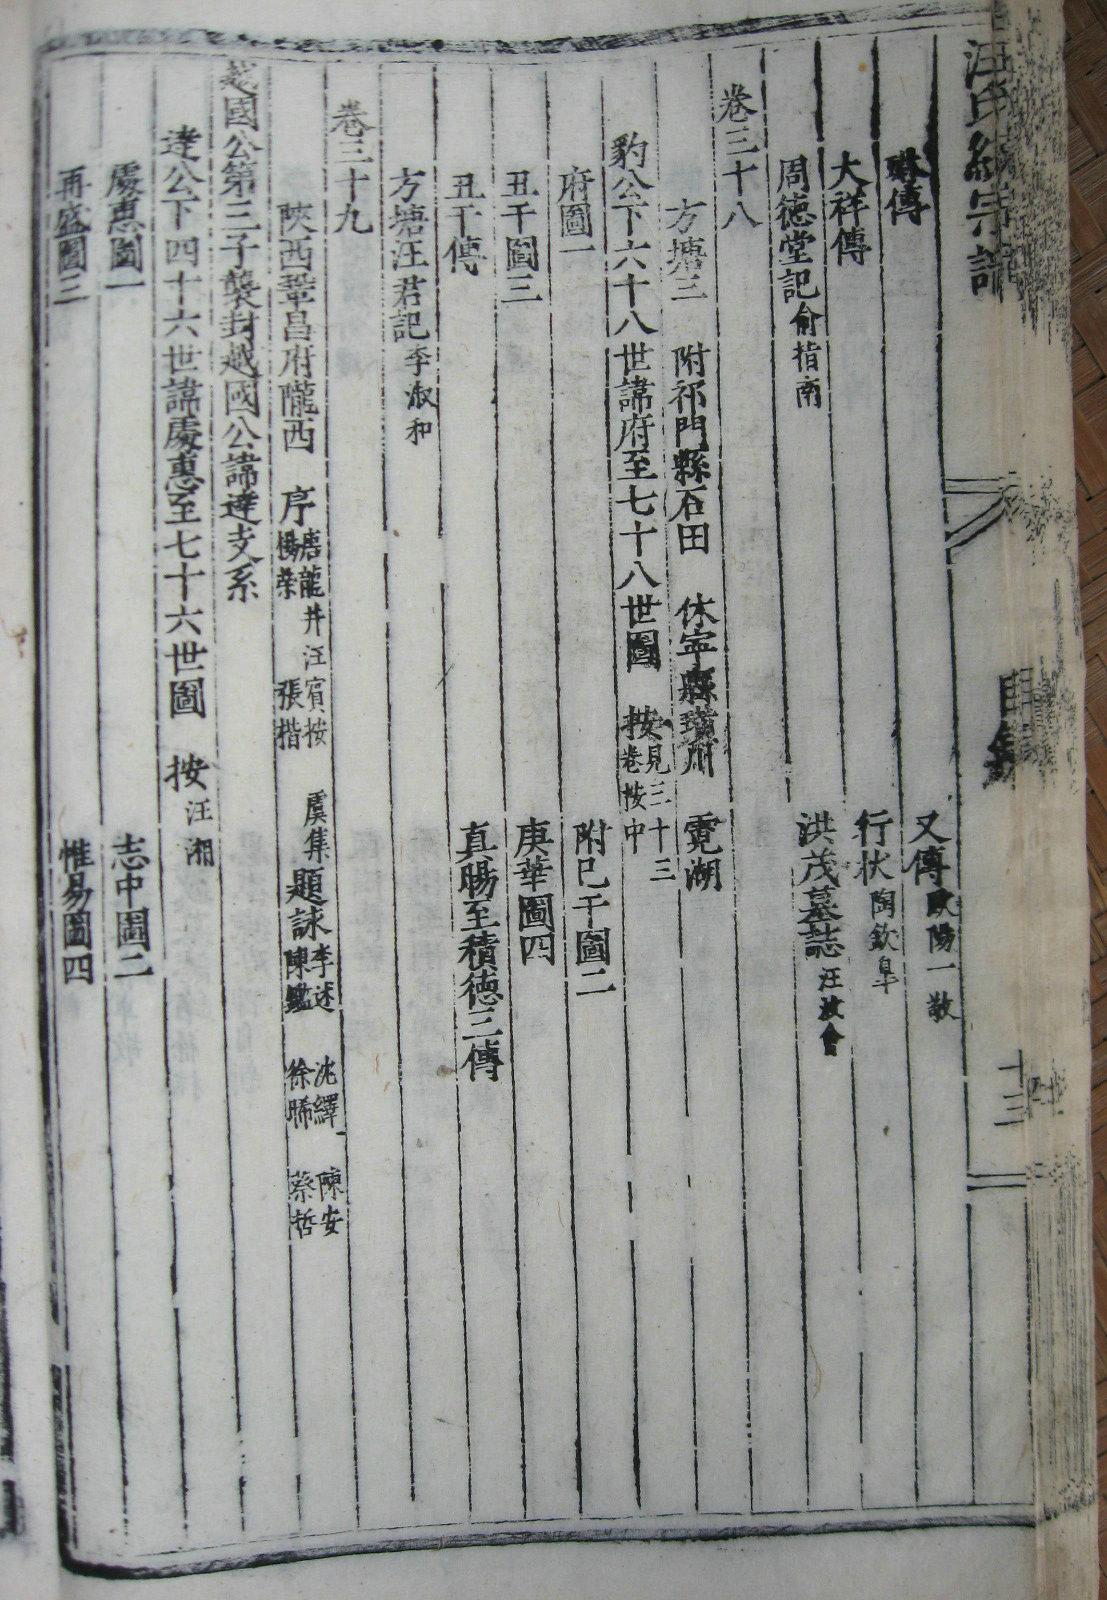 汪氏統宗譜
目錄
十三
琳傳 又傳 歐陽一敬
大祥傳 行狀 陶欽臯
周德堂記 俞指南 洪茂墓誌 汪放會
卷三十八
方塘三 附祁門縣石田 休寧縣璜川 霓湖
豹公下六十八世諱府至七十八世圖 按 見三十三卷按中
府圖一 附巳干圖二
丑干圖三 庚華圖四
丑干傳 真賜至積德三傳
方塘汪君記 李淑和
卷三十九
陝西鞏昌府隴西 序 唐龍 井汪賓按 虞集 楊榮 張楷 題詠 李述 沈繹 陳安 陳鑑 徐晞 蔡哲
越國公第三子襲封越國公諱達支系
達公下四十六世諱處惠至七十六世圖 按 汪湘
處惠圖一 志中圖二
再盛圖三 惟易圖四